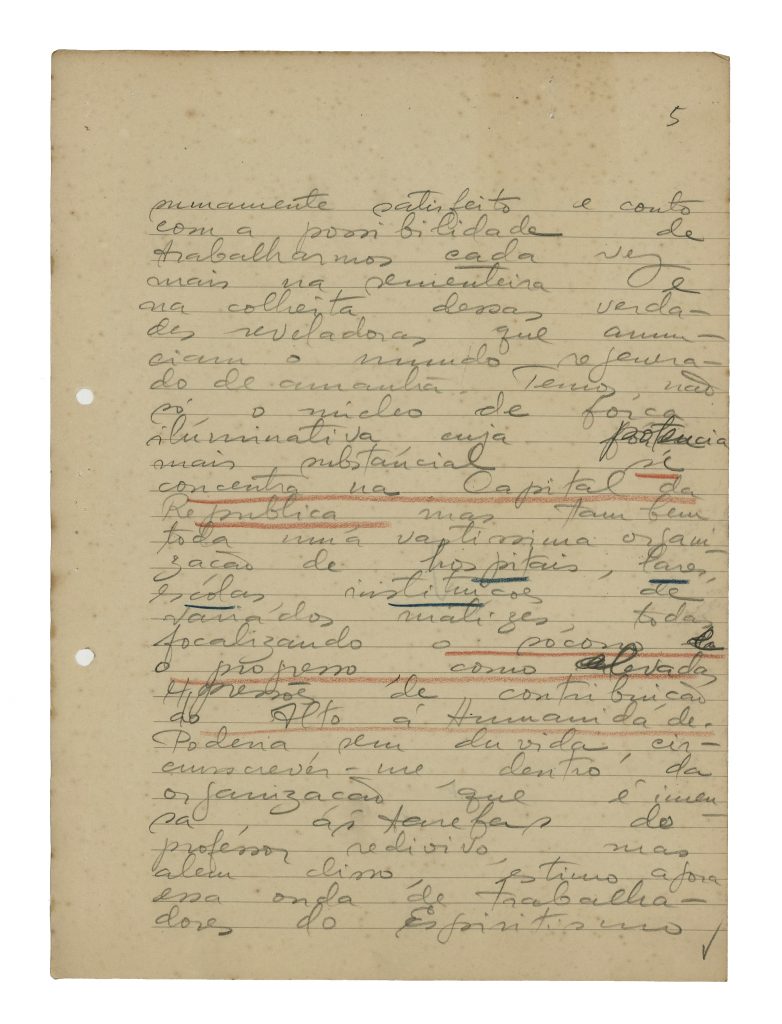 5
summamente satisfeito e conto
com a possibilidade de
trabalharmos cada vez
mais na sementeira e
na colheita dessas verda-
des reveladoras que anun-
ciam o mundo regenera-
do de amanhã. Temos não
só o núcleo de fôrça
iluminativa cuja potencia
mais substáncial sé
concentra na Capital da
Republica mas tambem
toda uma vastissima organi
zação de hospitais, lares,
escólas instituições de
variádos matizes, todas
focalizando o socorro
o progresso como elevadas
expressões de contribuição
do Alto á Humanidáde.
Poderia sem duvida cir-
cunscrevér-me dentro da
organização que é imen
sa, ás tarefas do
proféssor redivivo mas
alem disso, estimo agora
essa onda de trabalha-
dores do Espiritismo